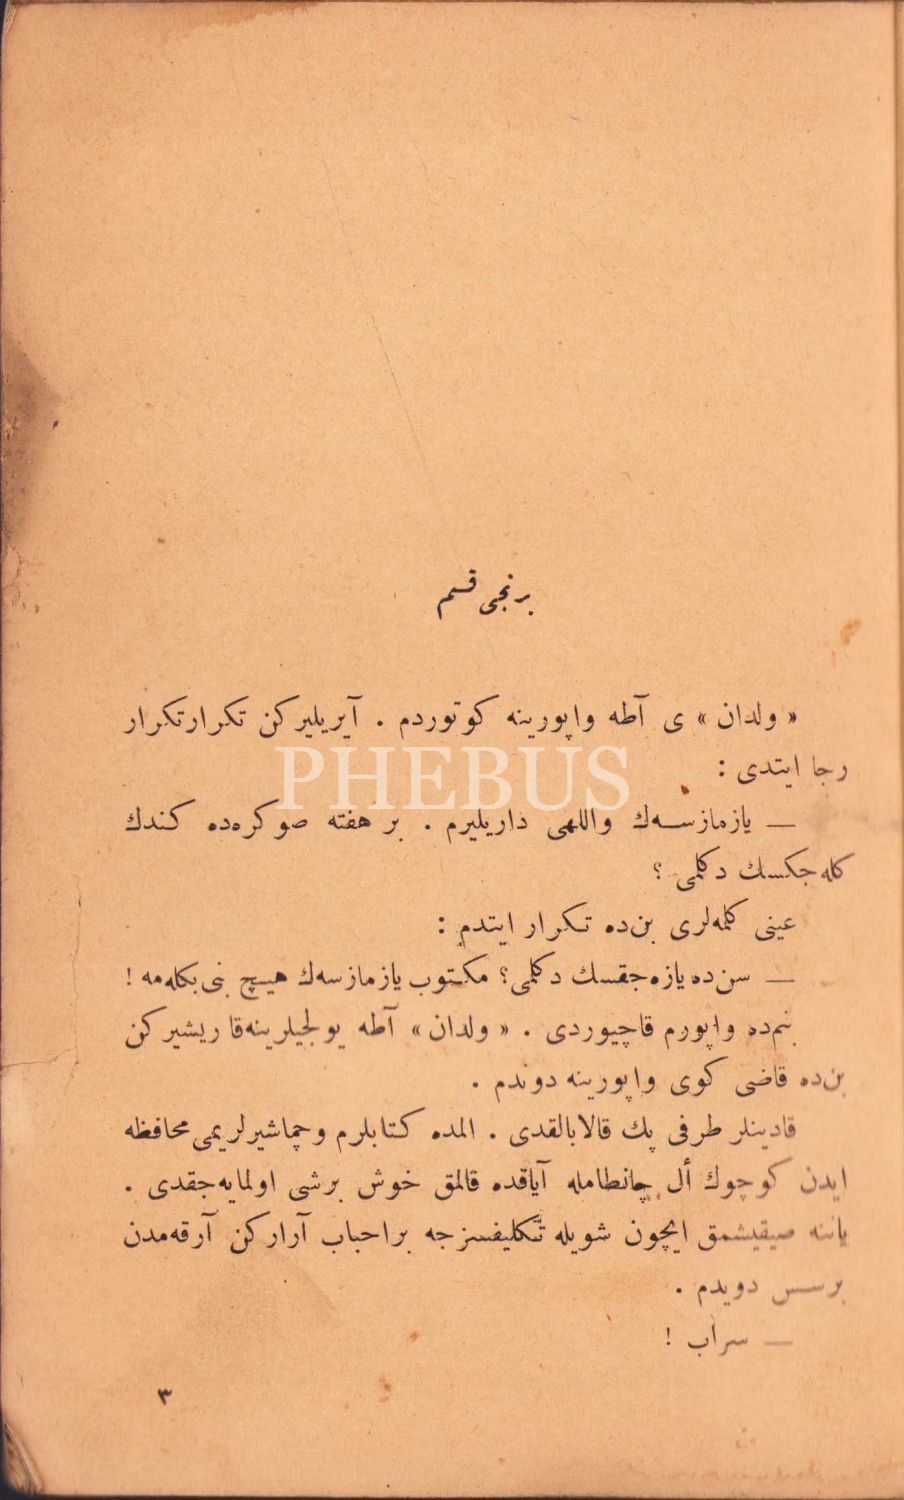 برنجی قسم
« ولدان » ی آطه واپورینه کوتوردم . آیریلیرکن تکرار تکرار
رجا ایتدی :
— یازمازسه‌ك واللهی داریلیرم . بر هفته صوکره‌ده کندك
کله‌جکسك دکلمی ؟
عینی کلمه‌لری بن‌ده تکرار ایتدم :
— سن‌ده یازه‌جقسك دکلمی؟ مکتوب یازمازسه‌ك هیچ بنی بکله‌مه !
بنم‌ده واپورم قاچیوردی . « ولدان » آطه یولجیلرینه قاریشیرکن
بن‌ده قاضی کوی واپورینه دوندم .
قادینلر طرفی پك قالابالقدی . المده کتابلرم وچماشیرلریمی محافظه
ایدن کوچوك أل چانطامله آیاقده قالمق خوش برشی اولمایه‌جقدی .
یاننه صیقیشمق ایچون شویله تکلیفسزجه براحباب آرارکن آرقه‌مدن
برسس دویدم .
— سراب !
٣
PHEBUS